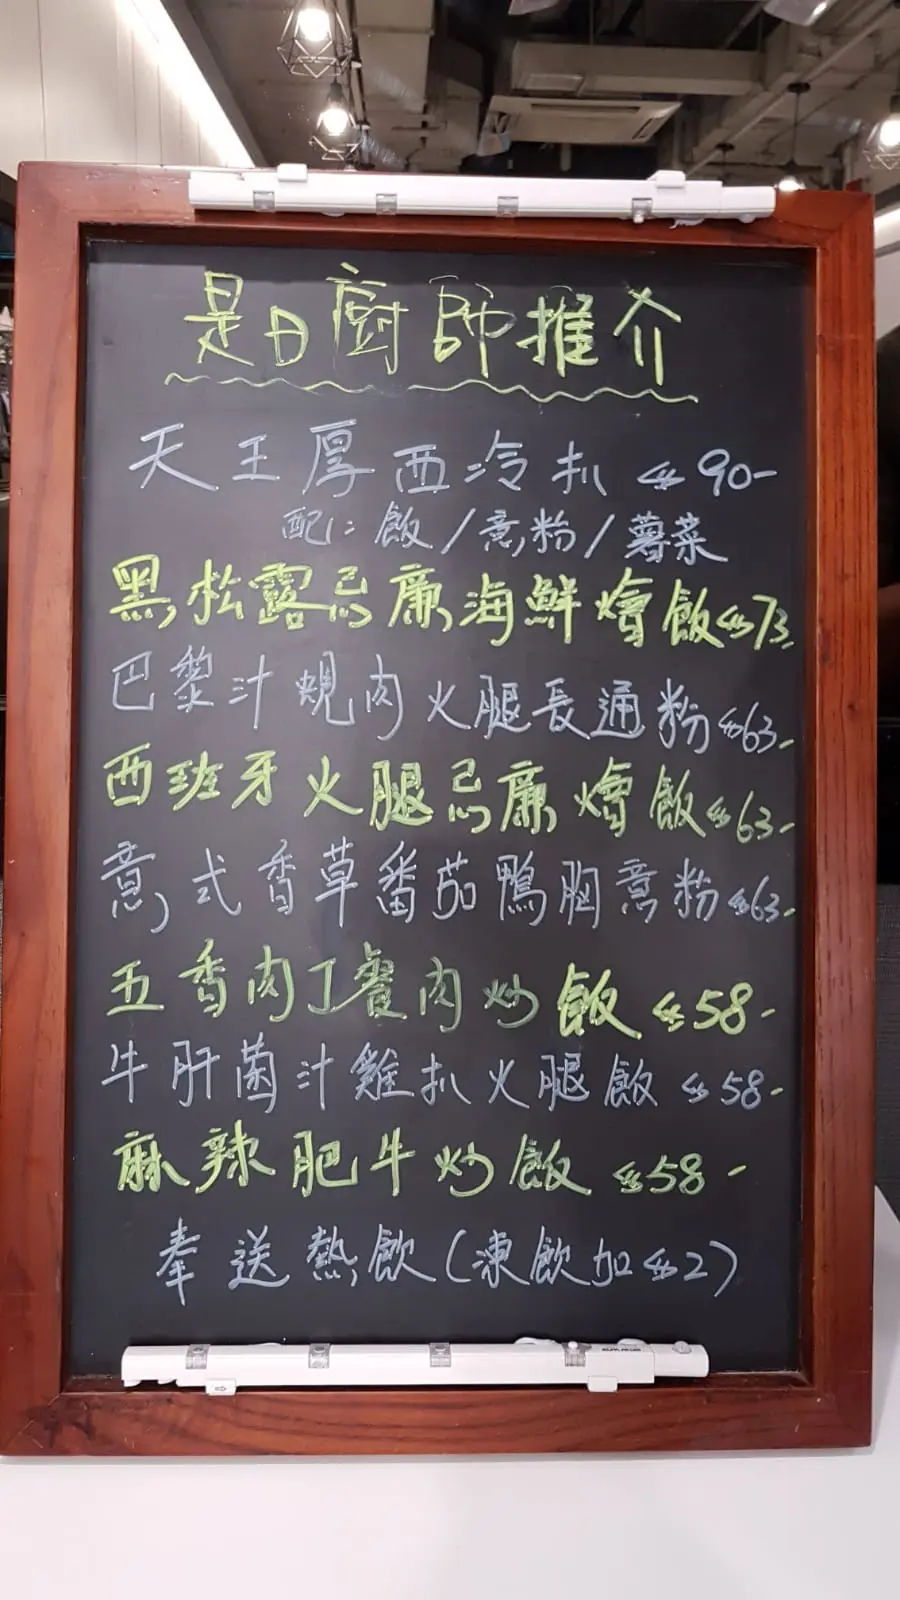 是日廚師推介
天王厚西冷扒 $90-
配: 飯/意粉/薯菜
黑松露忌廉海鮮燴飯 $73-
巴黎汁蜆肉火腿長通粉 $63-
西班牙火腿忌廉燴飯 $63-
意式香草番茄鴨胸意粉 $63-
五香肉丁餐肉炒飯 $58-
牛肝菌汁雞扒火腿飯 $58-
麻辣肥牛炒飯 $58-
奉送熱飲(凍飲加$2)